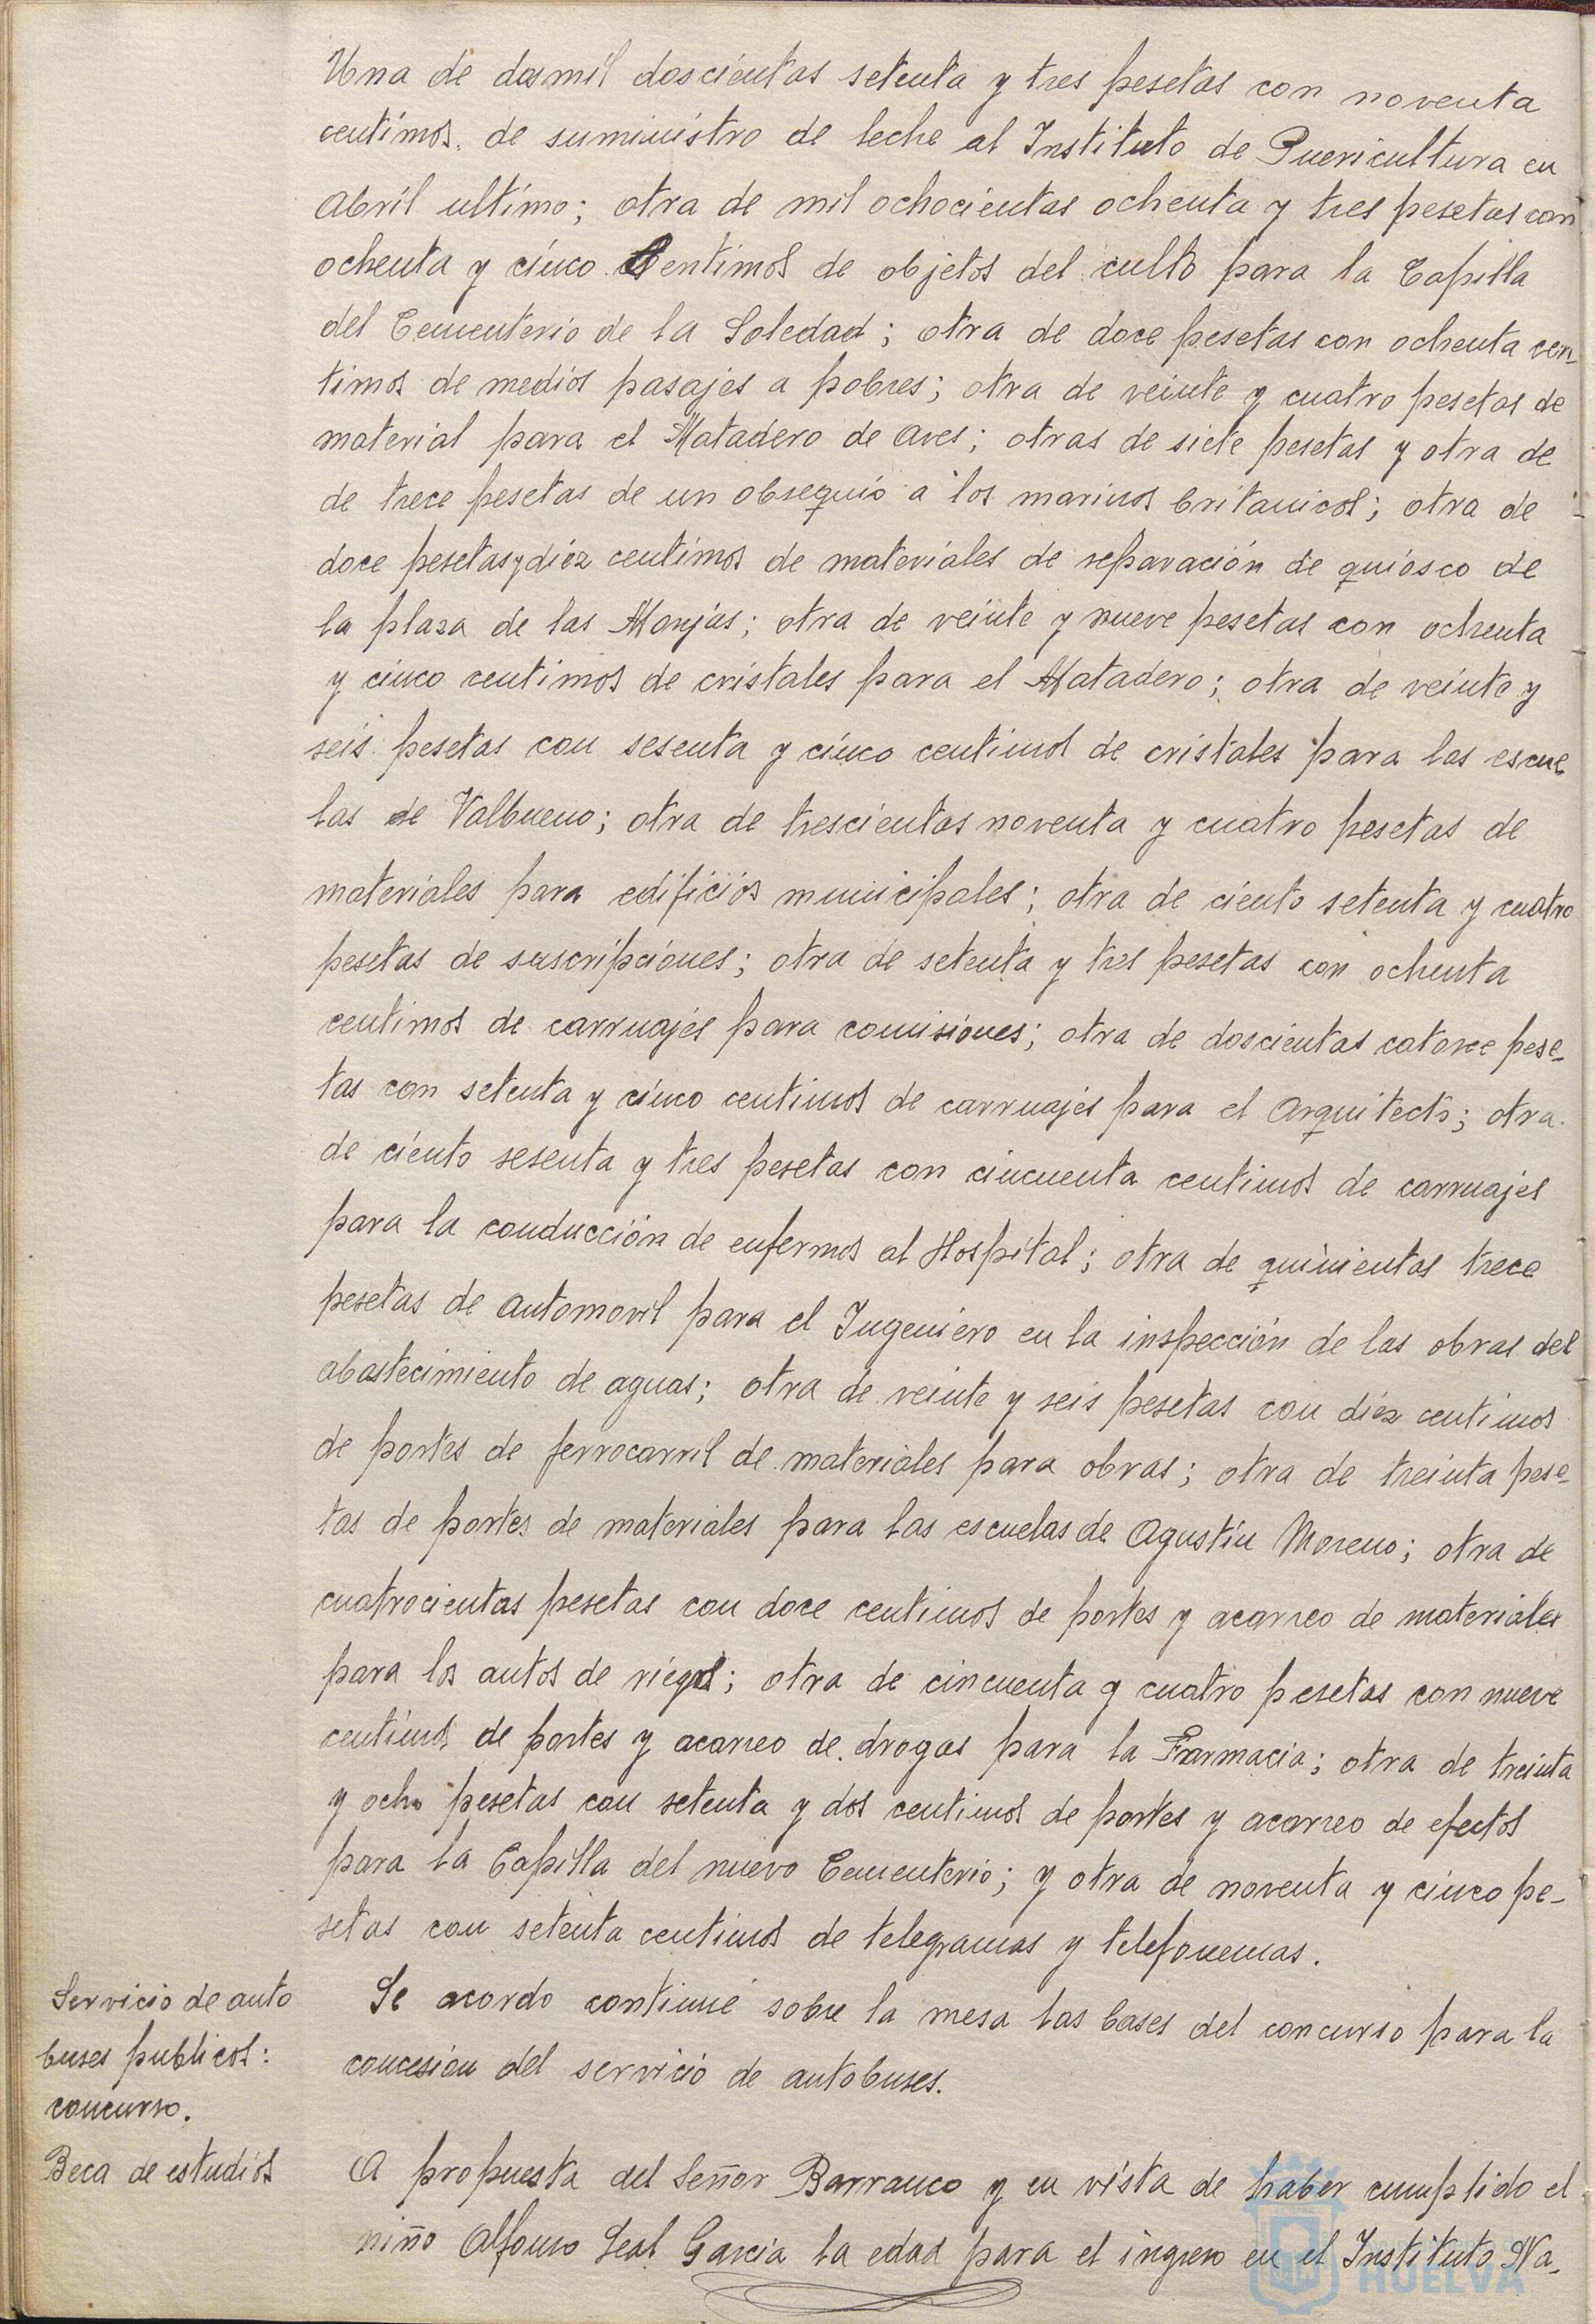 Una de dosmil doscientas setenta y tres pesetas con noventa
centimos. de suministro de leche al Instituto de Puericultura en
Abril ultimo; otra de mil ochocientas ochenta y tres pesetas con
ochenta y cinco centimos de objetos del culto para la Capilla
del Cementerio de la Soledad; otra de doce pesetas con ochenta cen-
timos de medios pasajes a pobres; otra de veinte y cuatro pesetas de
material para el Matadero de Aves; otras de siete pesetas y otra de
de trece pesetas de un obsequio a los marinos britanicos; otra de
doce pesetas y diez centimos de materiales de reparación de quiosco de
la plaza de las Monjas; otra de veinte y nueve pesetas con ochenta
y cinco centimos de cristales para el Matadero; otra de veinte y
seis pesetas con sesenta y cinco centimos de cristales para las escue
las de Valbueno; otra de trescientas noventa y cuatro pesetas de
materiales para edificios municipales; otra de ciento setenta y cuatro
pesetas de suscripciones; otra de setenta y tres pesetas con ochenta
centimos de carruajes para comisiones; otra de doscientas catorce pese-
tas con setenta y cinco centimos de carruajes para el Arquitecto; otra
de ciento sesenta y tres pesetas con cincuenta centimos de carruajes
para la conducción de enfermos al Hospital; otra de quinientas trece
pesetas de automovil para el Ingeniero en la inspección de las obras del
abastecimiento de aguas; otra de veinte y seis pesetas con diez centimos
de portes de ferrocarril de materiales para obras; otra de treinta pese-
tas de portes de materiales para las escuelas de Agustin Moreno; otra de
cuatrocientas pesetas con doce centimos de portes y acarreo de materiales
para los autos de riegos; otra de cincuenta y cuatro pesetas con nueve
centimos de portes y acarreo de drogas para la Farmacia; otra de treinta
y ocho pesetas con setenta y dos centimos de portes y acarreo de efectos
para la Capilla del nuevo Cementerio; y otra de noventa y cinco pe-
setas con setenta centimos de telegramas y telefonemas.
Servicio de auto
buses publicos:
concurso.
Se acordo continue sobre la mesa las bases del concurso para la
concesion del servicio de autobuses.
Beca de estudios
A propuesta del Señor Barranco y en vista de haber cumplido el
niño Alfonso Leal Garcia la edad para el ingreso en el Instituto Na-
HUELVA